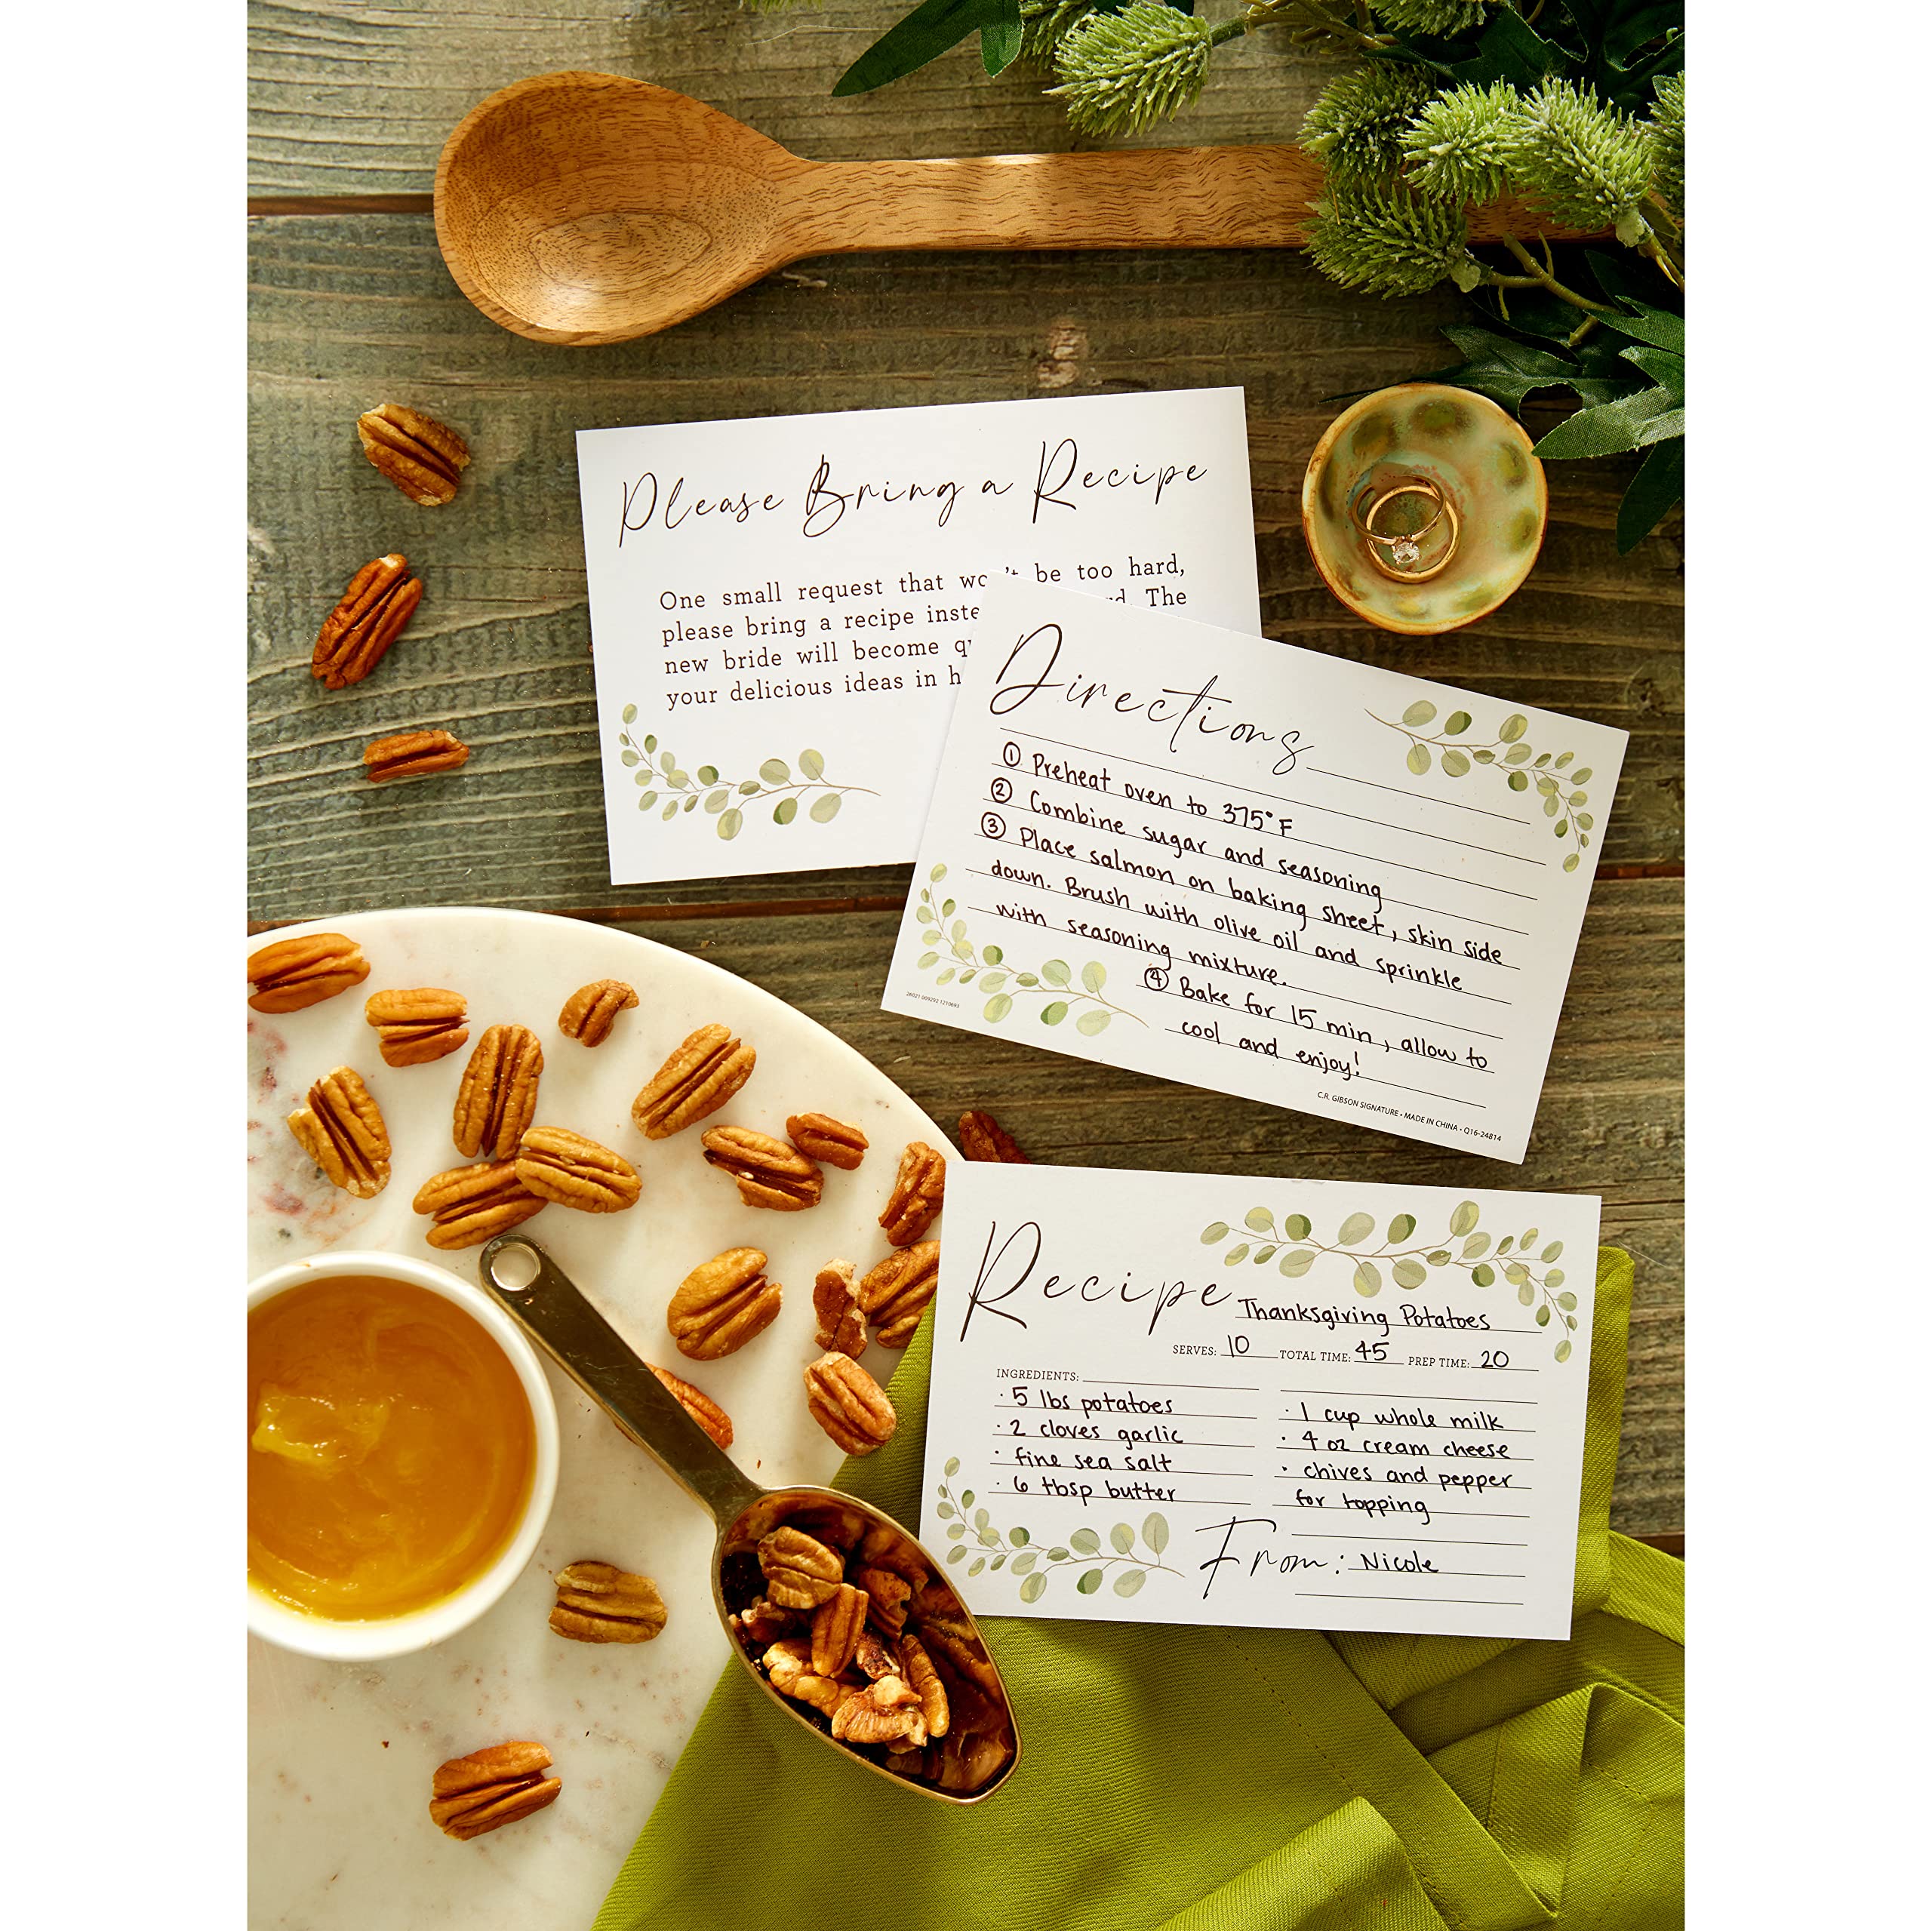 Please Bring a Recipe
One small request that be too hard,
please bring a recipe The
new bride will become
your delicious ideas in
Directions
① Preheat oven to 375°F
② Combine sugar and seasoning
③ Place salmon on baking sheet, skin side
down. Brush with olive oil and sprinkle
with seasoning mixture.
④ Bake for 15 min, allow to
cool and enjoy!
C.R. GIBSON SIGNATURE • MADE IN CHINA • Q16-24814
Recipe Thanksgiving Potatoes
SERVES: 10 TOTAL TIME: 45 PREP TIME: 20
INGREDIENTS:
· 5 lbs potatoes
· 2 cloves garlic
· fine sea salt
· 6 tbsp butter
· 1 cup whole milk
· 4 oz cream cheese
· chives and pepper
for topping
From: Nicole